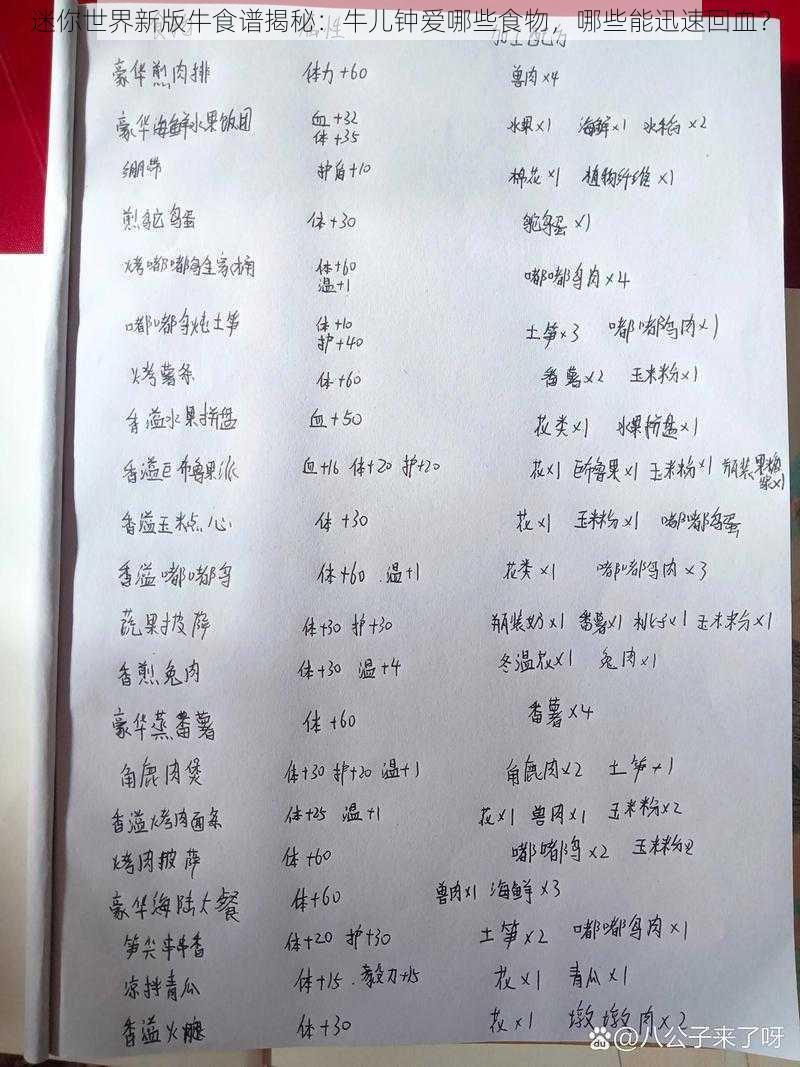 迷你世界新版牛食谱揭秘：牛儿钟爱哪些食物，哪些能迅速回血？
豪华煎肉排 体力+60 兽肉×4
豪华海鲜水果饭团 血+32 体+35 水果×1 海鲜×1 水稻×2
绷带 护盾+10 棉花×1 植物纤维×1
煎鸵鸟蛋 体+30 鸵鸟蛋×1
烤嘟嘟鸟全家桶 体+60 温+1 嘟嘟鸟肉×4
嘟嘟鸟炖土笋 体+10 护+40 土笋×3 嘟嘟鸟肉×1
烤薯条 体+60 番薯×2 玉米粉×1
香溢水果拼盘 血+50 花类×1 水果拼盘×1
香溢巨布鲁果派 血+16 体+20 护+20 花×1 巨布鲁果×1 玉米粉×1 瓶装果糖浆×1
香溢玉米点心 体+30 花×1 玉米粉×1 嘟嘟鸟蛋
香溢嘟嘟鸟 体+60 温+1 花类×1 嘟嘟鸟肉×3
蔬果披萨 体+30 护+30 瓶装奶×1 番薯×1 桃子×1 玉米粉×1
香煎兔肉 体+30 温+4 冬温花×1 兔肉×1
豪华蒸番薯 体+60 番薯×4
角鹿肉煲 体+30 护+20 温+1 角鹿肉×2 土笋×1
香溢烤肉面条 体+25 温+1 花×1 兽肉×1 玉米粉×2
烤肉披萨 体+60 嘟嘟鸟×2 玉米粉
豪华海陆大餐 体+60 兽肉×1 海鲜×3
笋尖串串香 体+20 护+30 土笋×2 嘟嘟鸟肉×1
凉拌青瓜 体+15 毅力+15 花×1 青瓜×1
香溢火腿 体+30 花×1 墩墩肉×2
Bai du @八公子来了呀